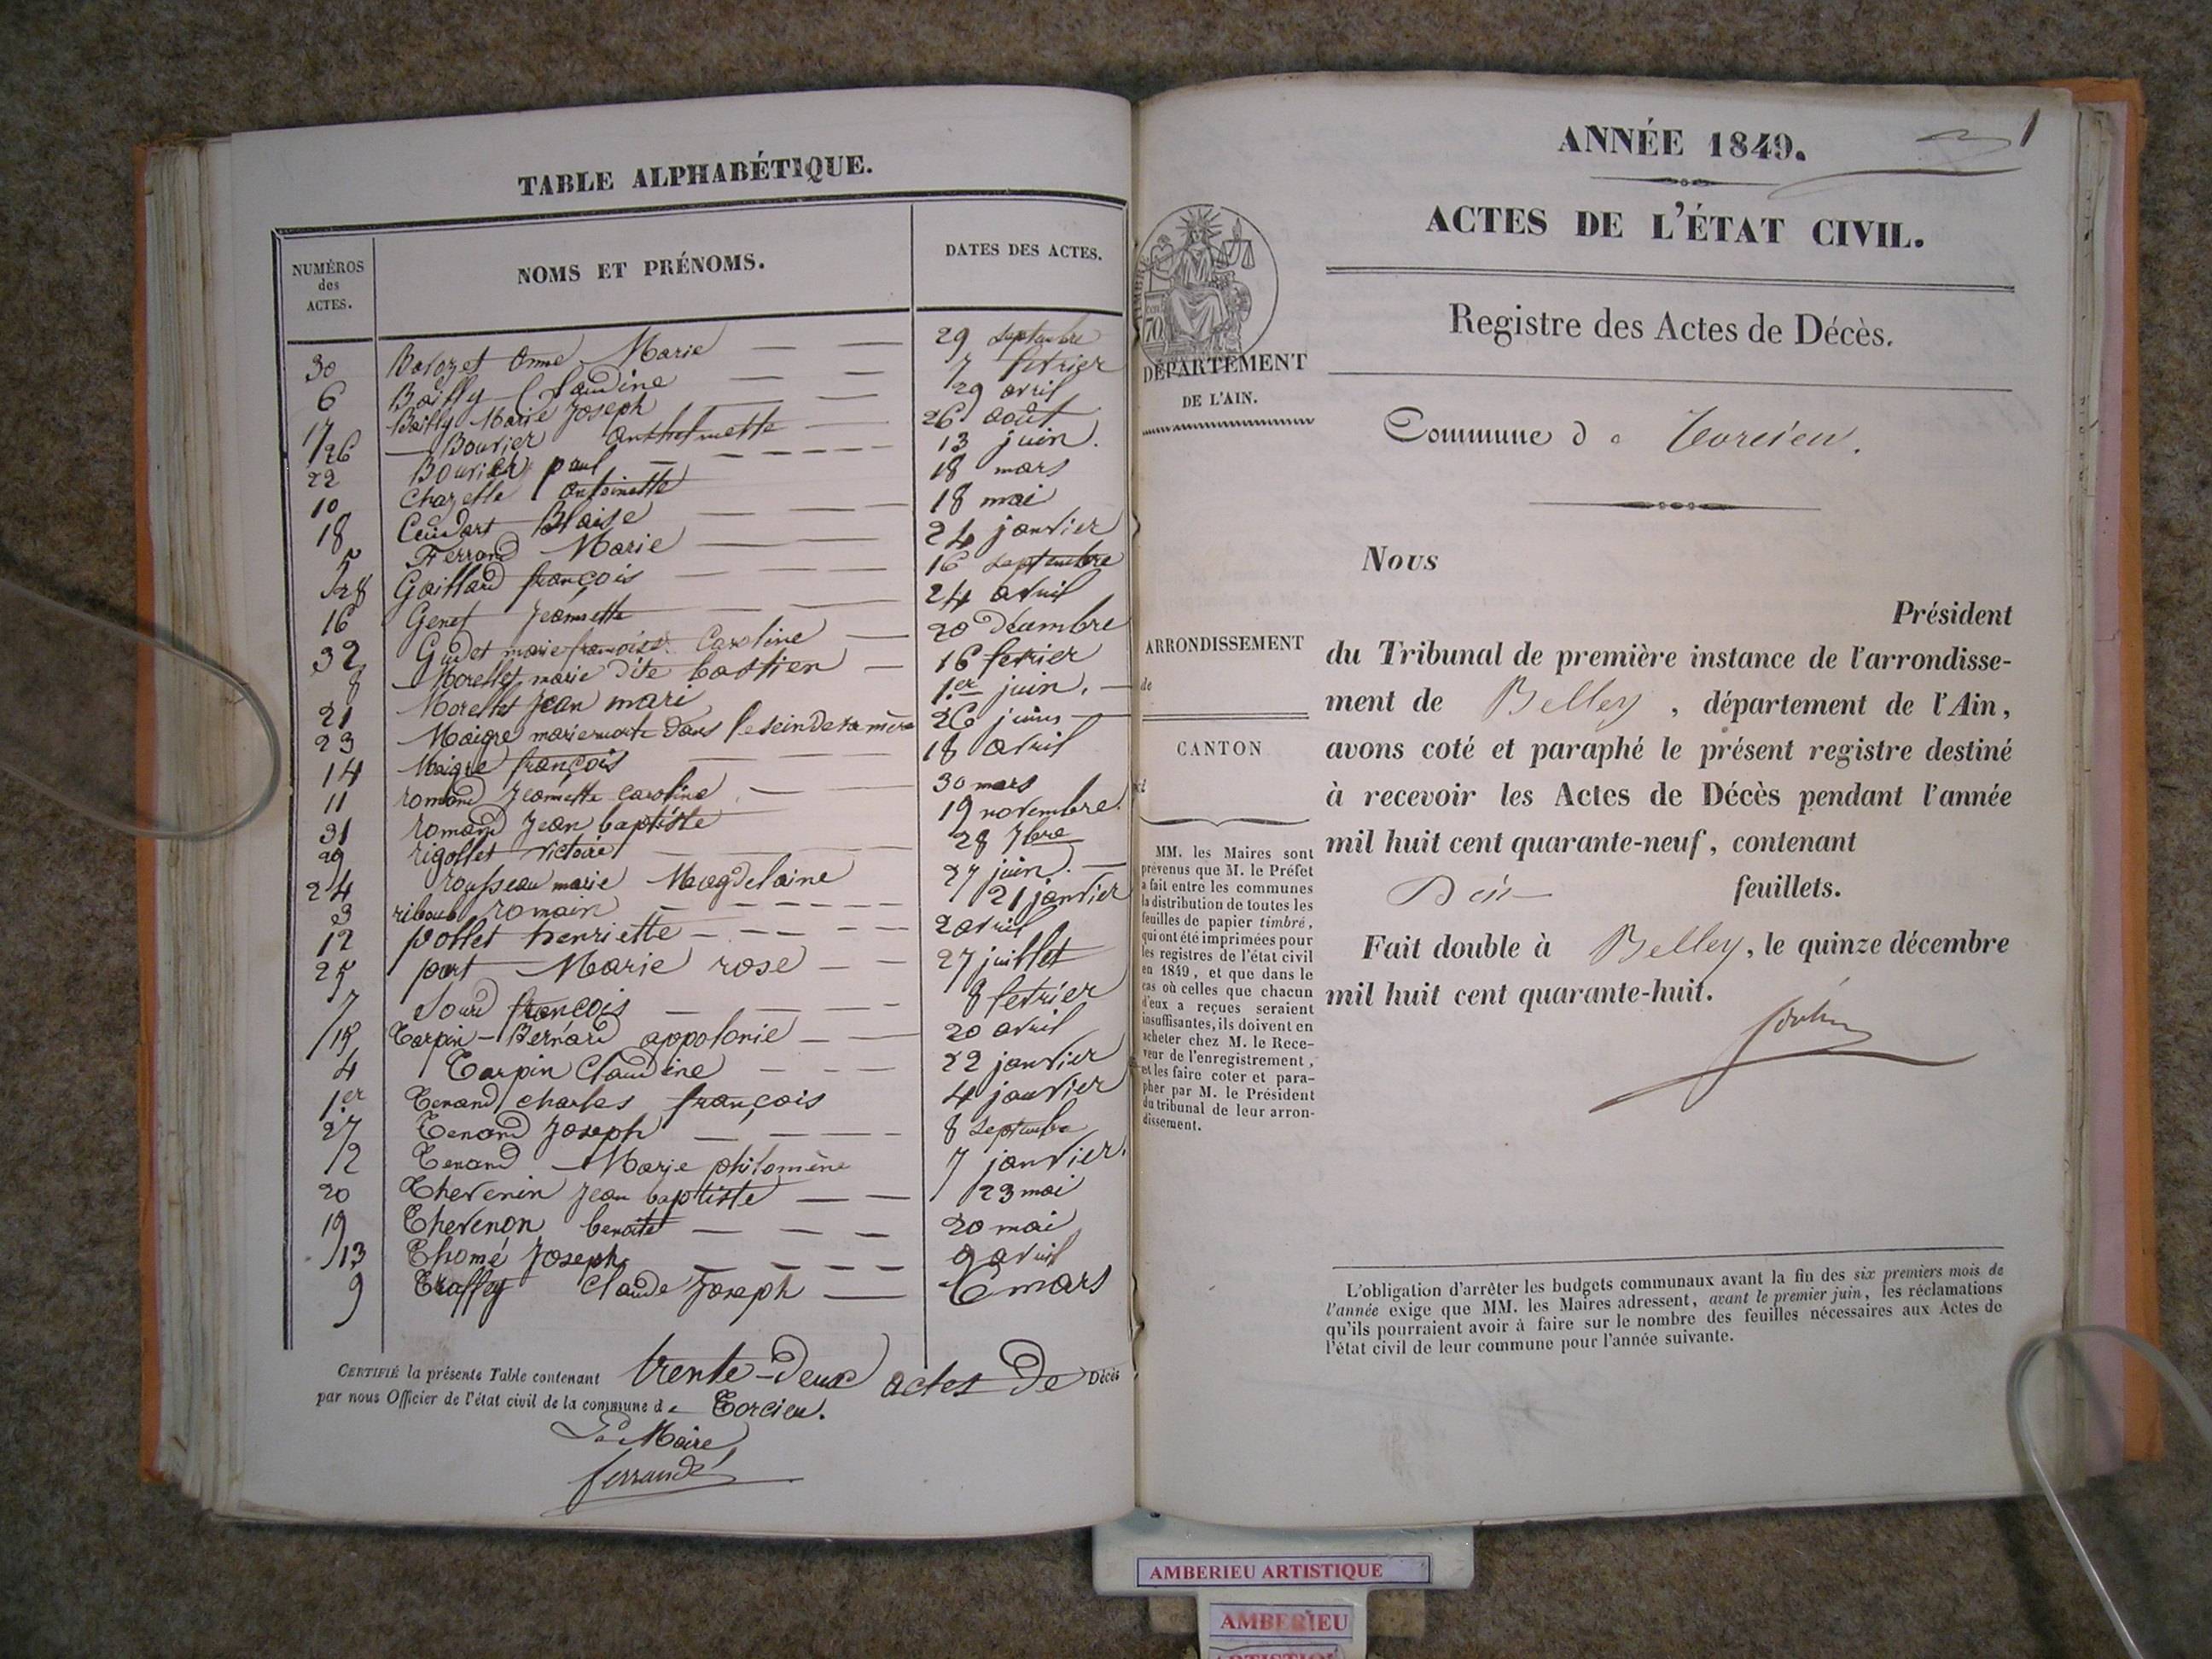 TABLE ALPHABÉTIQUE.
NUMÉROS des ACTES. NOMS ET PRÉNOMS. DATES DES ACTES.
30 anne Marie 29 septembre
6 Bailly Claudine 7 fevrier
17 Bailly Marie Joseph 29 avril
26 Bouvier Anthelmette 26 août
22 Bouvier paul 13 juin.
10 Chazelle Antoinette 18 mars
18 Blaise 18 mai
5 Ferrand Marie 24 janvier
28 Gaillard françois 16 septembre
16 Genet Jeannette 24 avril
32 Gudet marie françoise Caroline 20 Décembre
8 Morellet marie dite bastien 16 fevrier
21 Morellet Jean mari 1.er juin.
23 Maigre marie morte dans le sein de sa mère 26 juin
14 Maigre françois 18 avril
11 romand Jeannette caroline 30 mars
31 romand Jean baptiste 19 novembre.
29 rigollet victoire 28 7bre
24 rousseau marie Magdelaine 27 juin.
3 riboud romain 21 janvier
12 pollet henriette 2 avril
25 port Marie rose 27 juillet
7 Sourd françois 8 fevrier
15 Tarpin-Bernard appolonie 20 avril
4 Tarpin Claudine 22 janvier
1.er Tenand charles françois 4 janvier
27 Tenand Joseph 8 septembre
2 Tenand Marie philomène 7 janvier.
20 Thevenin Jean baptiste 23 mai
19 Thevenon benoite 20 mai
13 Thomé Joseph 9 avril
9 Traffey Claude Joseph 6 mars
CERTIFIÉ la présente Table contenant trente-deux actes de Décès
par nous Officier de l'état civil de la commune de Torcieu.
Le Maire
ferrand
1
ANNÉE 1849.
ACTES DE L'ÉTAT CIVIL.
Registre des Actes de Décès.
70
DÉPARTEMENT
DE L'AIN.
Commune de Torcieu.
Nous
Président
ARRONDISSEMENT
de
CANTON
du Tribunal de première instance de l'arrondisse-
ment de Belley, département de l'Ain,
avons coté et paraphé le présent registre destiné
à recevoir les Actes de Décès pendant l'année
mil huit cent quarante-neuf, contenant
feuillets.
Fait double à Belley, le quinze décembre
mil huit cent quarante-huit.
MM. les Maires sont
prévenus que M. le Préfet
a fait entre les communes
la distribution de toutes les
feuilles de papier timbré,
qui ont été imprimées pour
les registres de l'état civil
en 1849, et que dans le
cas où celles que chacun
d'eux a reçues seraient
insuffisantes, ils doivent en
acheter chez M. le Rece-
veur de l'enregistrement,
et les faire coter et para-
pher par M. le Président
du tribunal de leur arron-
dissement.
L'obligation d'arrêter les budgets communaux avant la fin des six premiers mois de
l'année exige que MM. les Maires adressent, avant le premier juin, les réclamations
qu'ils pourraient avoir à faire sur le nombre des feuilles nécessaires aux Actes de
l'état civil de leur commune pour l'année suivante.
AMBERIEU ARTISTIQUE
AMBERIEU
ARTISTIQUE